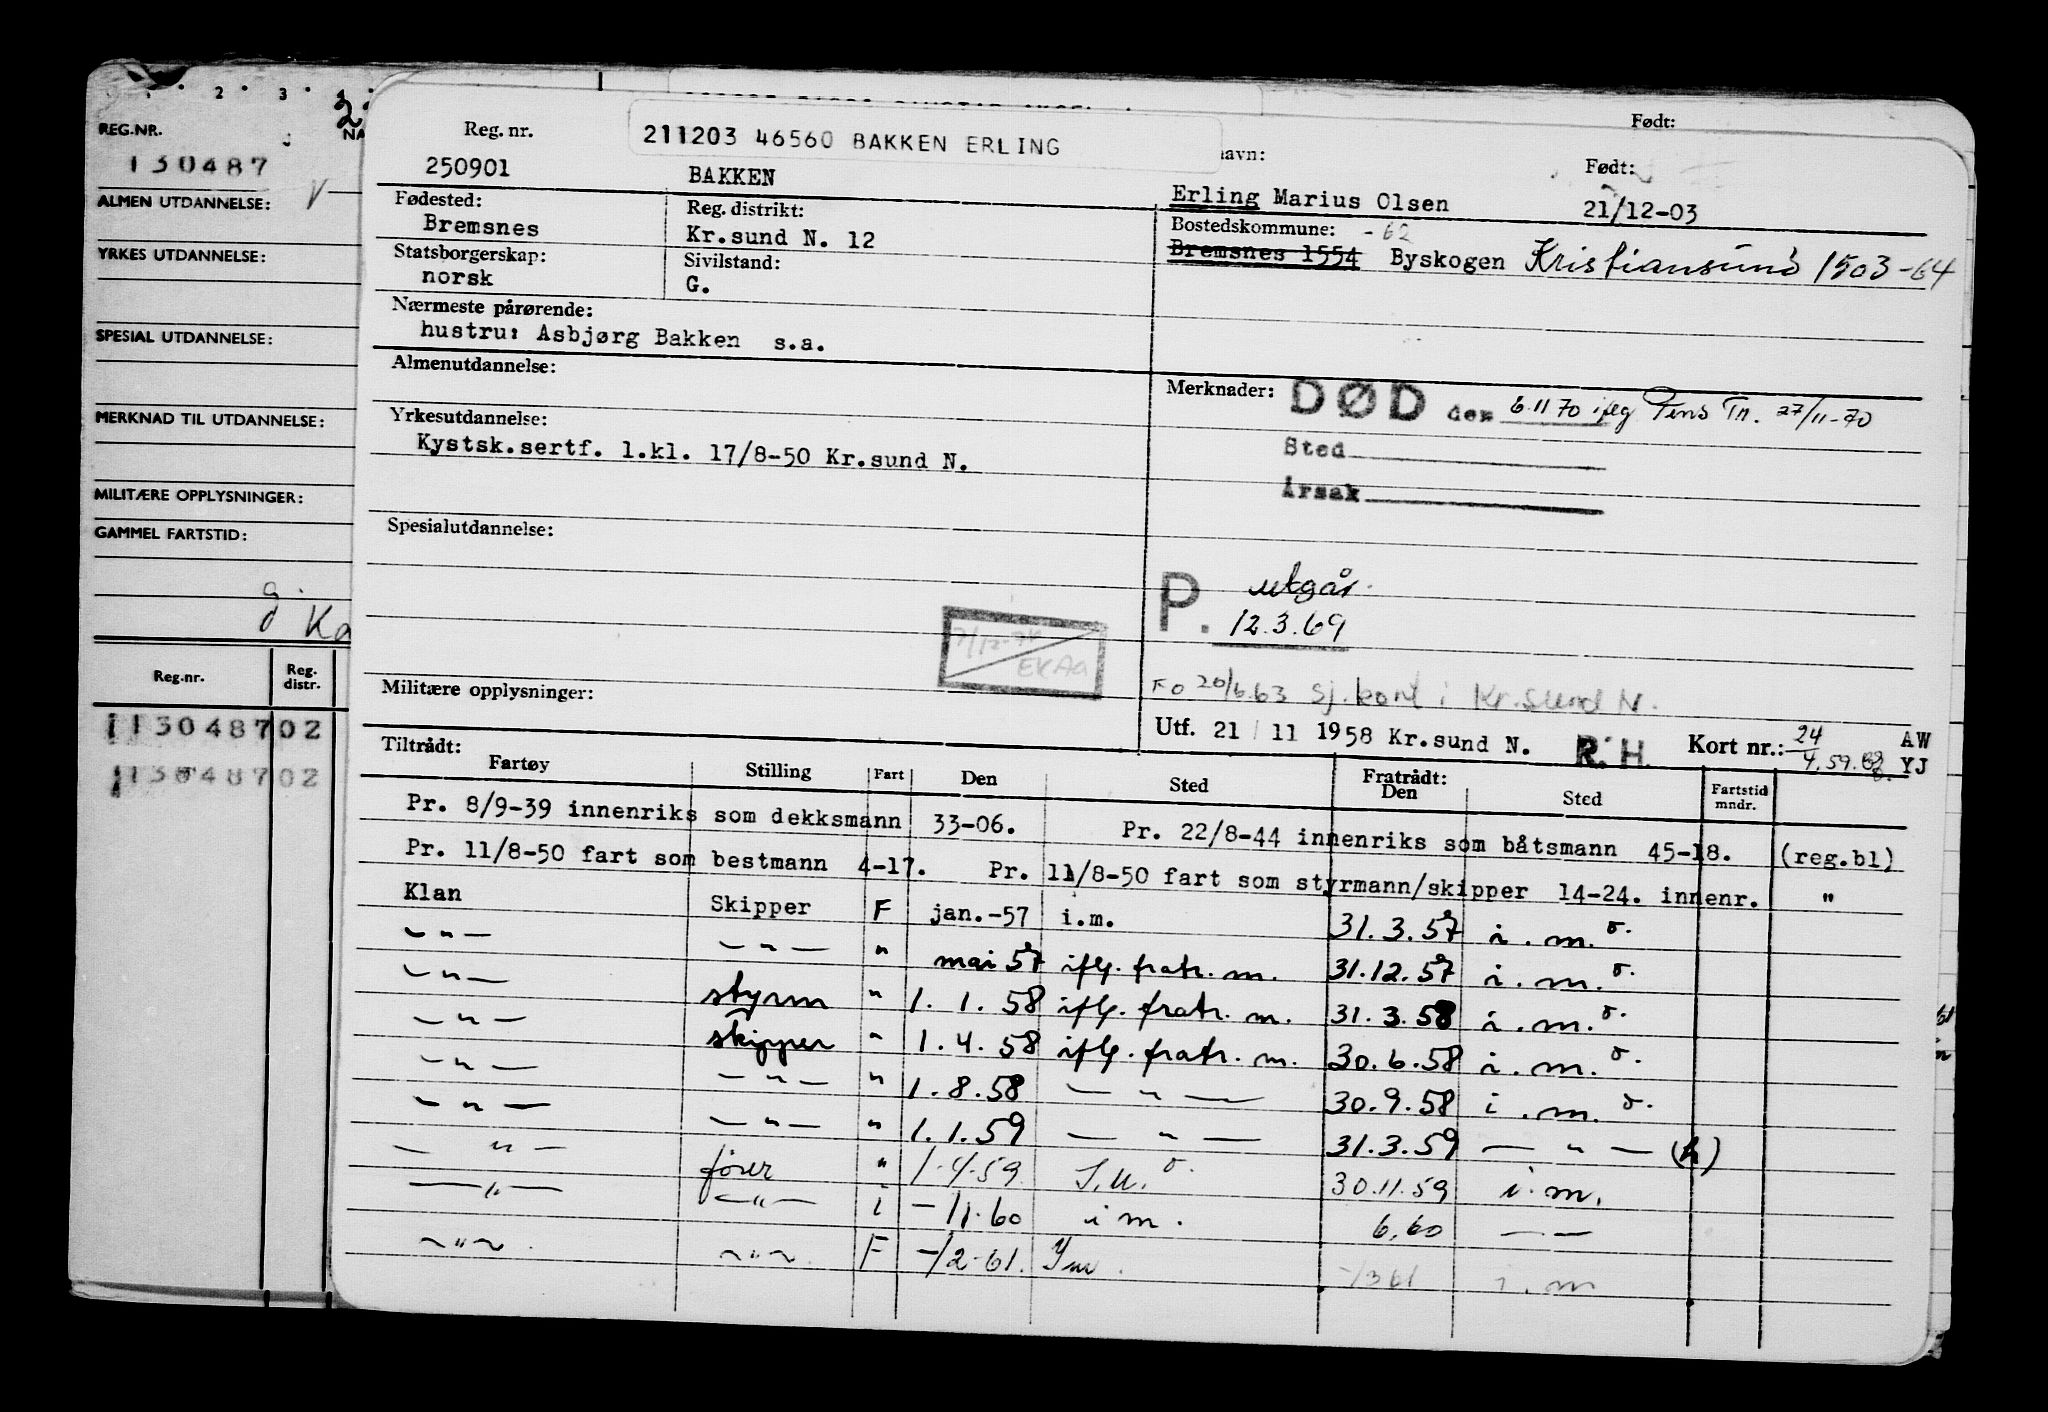 2 3 4
REG.NR. NA
130487
ALMEN UTDANNELSE:
YRKES UTDANNELSE:
SPESIAL UTDANNELSE:
MERKNAD TIL UTDANNELSE:
MILITÆRE OPPLYSNINGER:
GAMMEL FARTSTID:
g. Ka
Reg.nr. Reg. distr.
113048702
113048702
Født:
Reg. nr. 211203 46560 BAKKEN ERLING navn: Født:
250901 BAKKEN Erling Marius Olsen 21/12-03
Fødested: Reg. distrikt: Bostedskommune: -62
Bremsnes Kr.sund N. 12 Bremsnes 1554 Byskogen Kristiansund 1503-64
Statsborgerskap: Sivilstand:
norsk G.
Nærmeste pårørende:
hustru: Asbjørg Bakken s.a.
Almenutdannelse: Merknader: DØD den 6.11 70 iflg Pens Tr. 27/11-70
Yrkesutdannelse: Sted
Kystsk.sertf. 1.kl. 17/8-50 Kr.sund N.
Årsak
Spesialutdannelse:
P. utgår.
12.3.69
Fo 20/6.63 Sj.kont i Kr.sund N.
Militære opplysninger: Utf. 21/11 1958 Kr.sund N. R.H. Kort nr.: 24 AW
YJ
Tiltrådt: Fratrådt:
Fartøy Stilling Fart Den Sted Den Sted Fartstid mndr.
Pr. 8/9-39 innenriks som dekksmann 33-06. Pr. 22/8-44 innenriks som båtsmann 45-18. (reg.bl)
Pr. 11/8-50 fart som bestmann 4-17. Pr. 11/8-50 fart som styrmann/skipper 14-24. innenr. "
Klan Skipper F jan.-57 i.m. 31.3.57 i.m. o.
— " — — " — " mai 57 iflg. fratr. m. 31.12.57 i.m. o.
— " — styrm " 1.1.58 iflg. fratr. m. 31.3.58 i.m. o.
— " — skipper " 1.4.58 iflg. fratr. m. 30.6.58 i.m. o.
— " — — " — " 1.8.58 — " — 30.9.58 i.m. o.
— " — — " — " 1.1.59 — " — 31.3.59 — " — (h)
— " — fører " 1.4.59 30.11.59 i.m.
— " — — " — i -/1.60 i m. 6.60 — —
— " — — " — F -/2-61. -/3 61 i.m